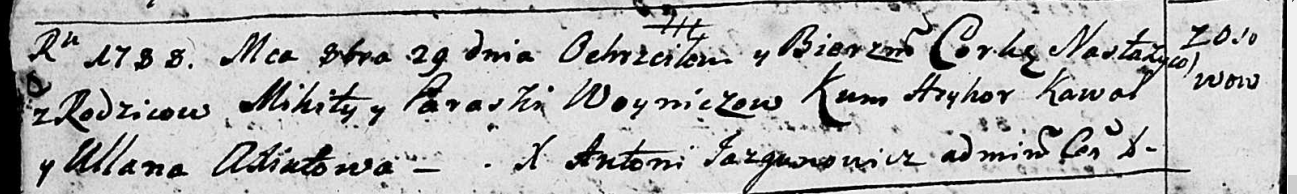 Rᵘ 1788. Mca 8bra 29 dnia Ochrzciłem y Bierzm̃ Corkę Nastazyą
z Rodzicow Mikiły y Paraski Woyniczow Kum Hryhor Kawal
y Ullana Adiatowa — . X Antoni Jazgunowicz admin̄
z Oso
wow